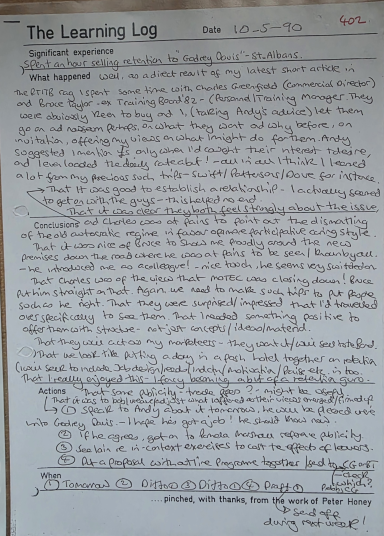 402.
The Learning Log Date 10-5-90
Significant experience
Spent an hour selling retention to "Godfrey Davis" - St. Albans.
What happened Well, as a direct result of my latest short article in
the RTITB rag I spent some time with Charles Greenfield (Commercial Director)
and Bruce Taylor - ex Training Board '82 - (Personal/Training Manager. They
were obviously keen to buy and I, (taking Andy's advice) let them
go on ad nauseam perhaps, on what they want and why before, on
invitation, offering my views on what I might do for them. Andy
suggested I mention only when I'd caught their interest
and I even loaded the daily rate a bit! - all in all I think I learned
a lot from my previous such trips - Swift/Pattersons/Dove for instance.
That it was good to establish a relationship - I actually seemed
to get on with the guys - this helped no end.
That it was clear they both feel strongly about the issue,
Conclusions and Charles was at pains to point out the dismantling
of the old autocratic regime in favour of a more participative caring style.
That it was nice of Bruce to show me proudly around the new
premises down the road where he was at pains to be seen/known by all.
- he introduced me as a colleague! - nice touch, he seems very suited
That Charles was of the view that MOTEC was closing down! Bruce
put him straight on that. Again, we need to make such trips to put people
such as he right. That they were surprised/impressed that I'd travelled
over specifically to see them. That I needed something positive to
offer them with structure - not just concepts/ideas/material.
That they will act as my marketeers - they want it/will
That we look like putting a day in a posh hotel together on retention
(I will seek to include Job design/ /Induction/Motivation/ etc. in too.
That I really enjoyed this - I fancy becoming a bit of a retention guru.
Actions That some publicity - trade press? - might be useful
That it was
① Speak to Andy about it tomorrow, he will be pleased
Write to Godfrey Davis - I hope he's got a job! he should know now.
② If he agrees, get on to Marshall re publicity.
③ See Iain re in-context exercises to cost the effect of leavers.
④ Put a proposal with outline Programme together
When
① Tomorrow ② Ditto ③ Ditto ④ Draft
.... pinched, with thanks, from the work of Peter Honey
Send off
during next week!